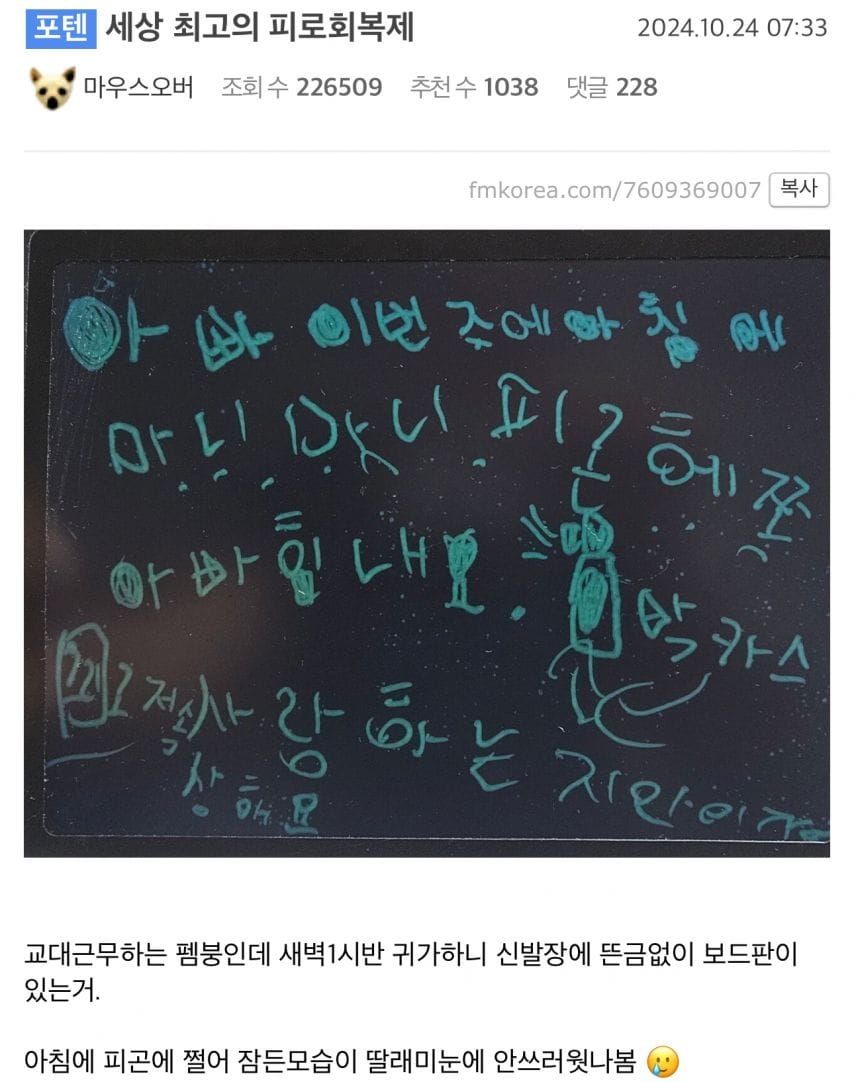 포텐 세상 최고의 피로회복제 2024.10.24 07:33
마우스오버 조회 수 226509 추천 수 1038 댓글 228
fmkorea.com/7609369007 복사
아빠 이번주에 아침에
마니 마니 피곤헤쪄
아빠 힘내요.
박카스
사랑하는
상해요
지안이가
교대근무하는 펨붕인데 새벽1시반 귀가하니 신발장에 뜬금없이 보드판이
있는거.
아침에 피곤에 쩔어 잠든모습이 딸래미눈에 안쓰러웟나봄